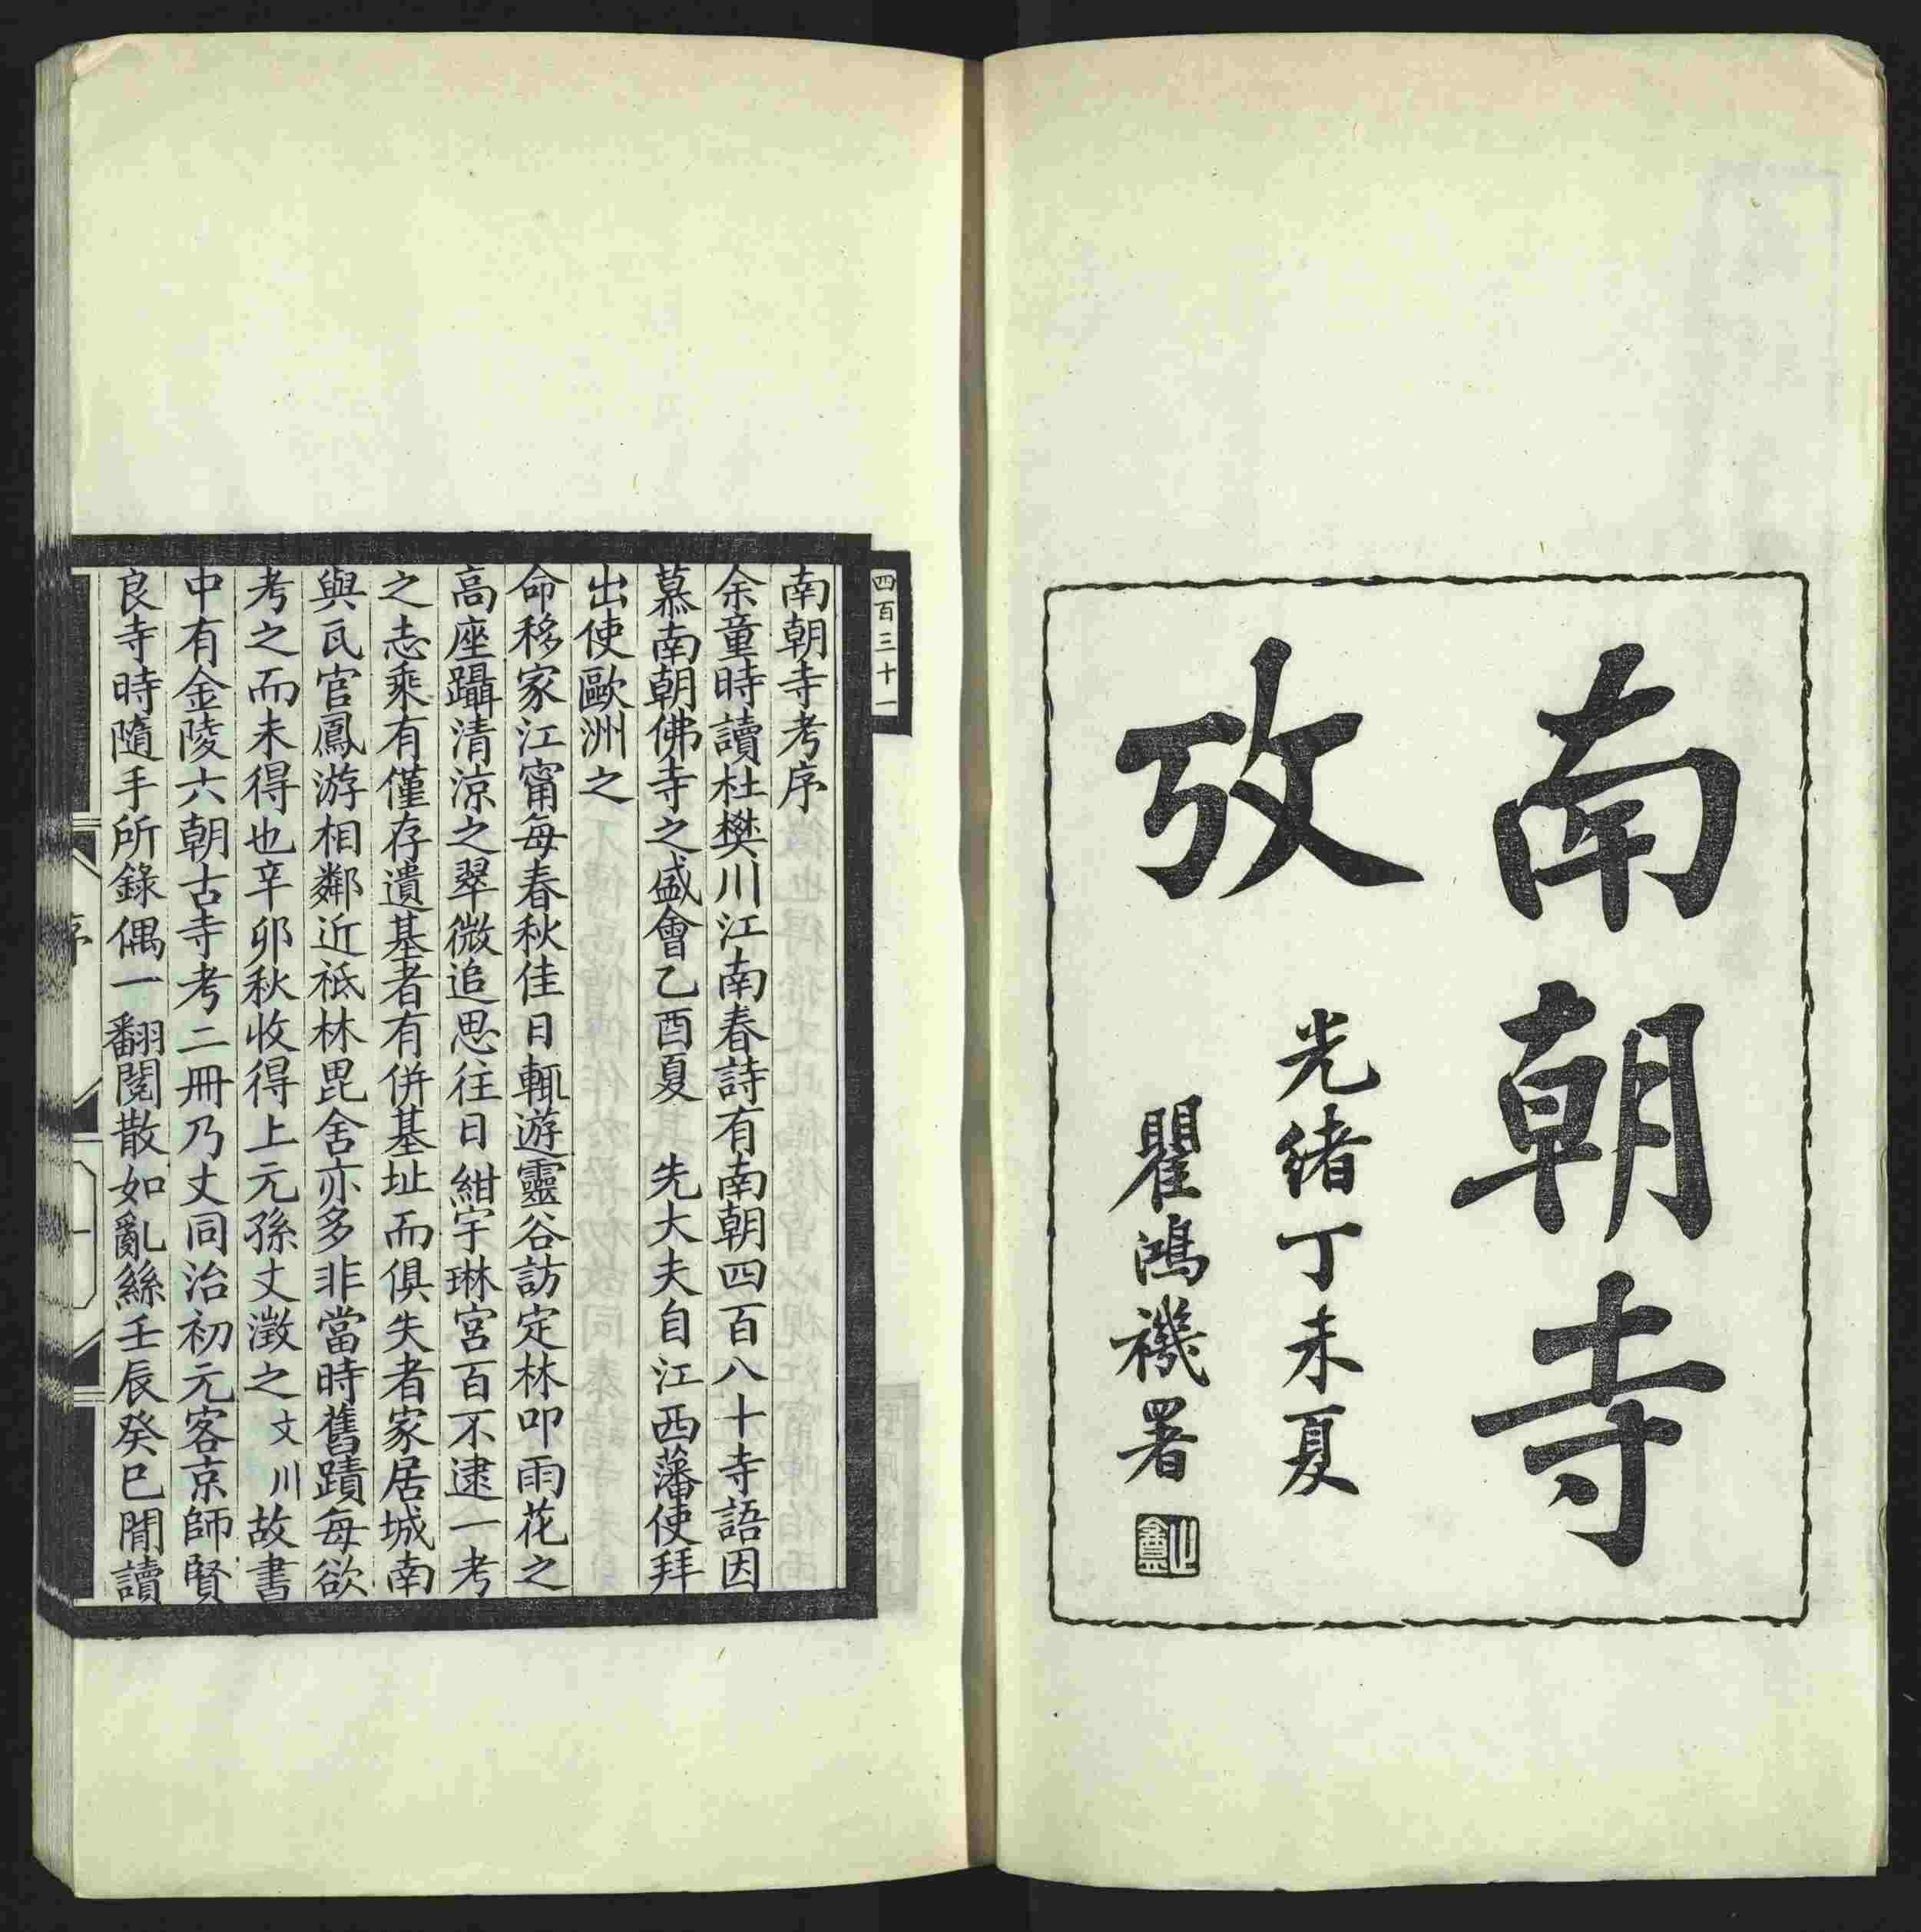 南朝寺
攷
光緒丁未夏
瞿鴻禨署
止盦
四百三十一
南朝寺考序
余童時讀杜樊川江南春詩有南朝四百八十寺語因
慕南朝佛寺之盛會乙酉夏　先大夫自江西藩使拜
出使歐洲之
命移家江甯每春秋佳日輒遊靈谷訪定林叩雨花之
高座躡清涼之翠微追思往日紺宇琳宮百不逮一考
之志乘有僅存遺基者有併基址而俱失者家居城南
與瓦官鳳游相鄰近祇林毘舍亦多非當時舊蹟每欲
考之而未得也辛卯秋收得上元孫丈澂之文川故書
中有金陵六朝古寺考二冊乃丈同治初元客京師賢
良寺時隨手所錄偶一翻閱散如亂絲壬辰癸巳閒讀
序
一